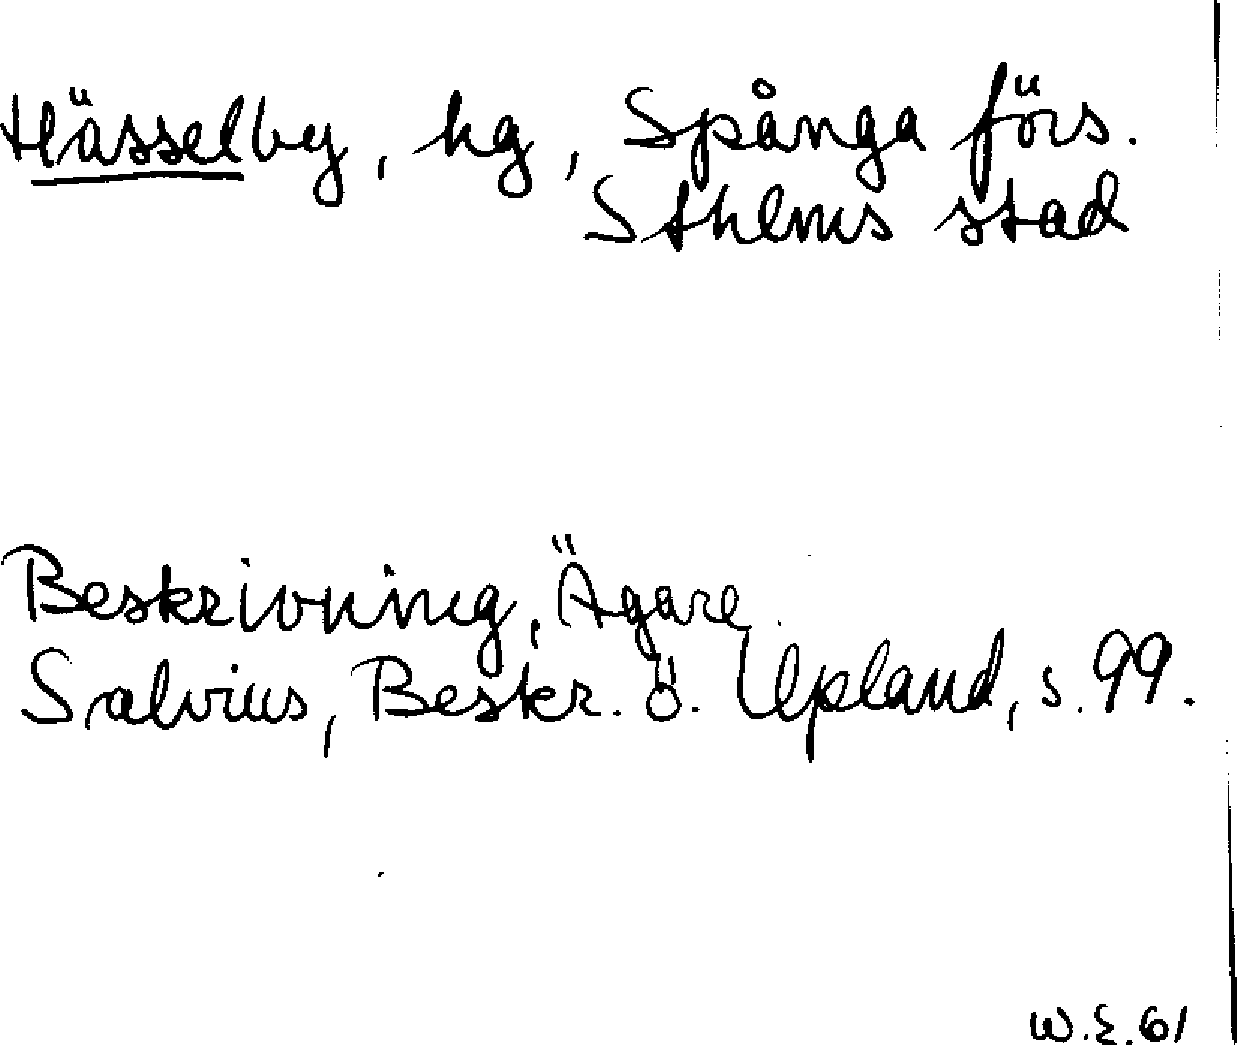 Hässelby, hg, Spånga förs.
Sthlms stad
Beskrivning, Ägare.
Salvius, Beskr. ö. Upland, s. 99.
W.E. 61